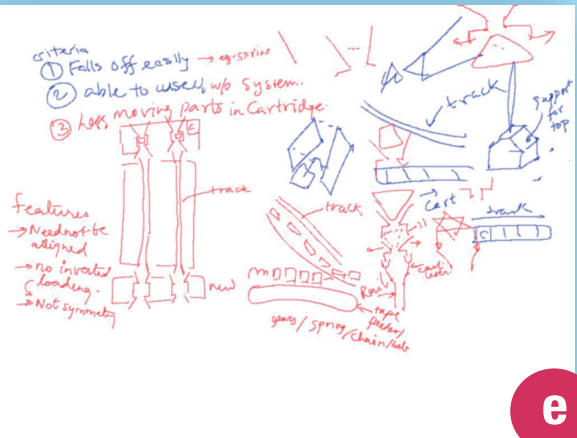 criteria
① Falls off easily → eg. spring
② able to used w/o system.
③ Less moving parts in Cartridge.
E
track
features
→ Need not be
aligned
→ no inverted
loading.
→ Not symmetry
new
track
track
support
for
top
Cart
track
track
Row
tape
feeder/
gears / spring / chain / belt
e